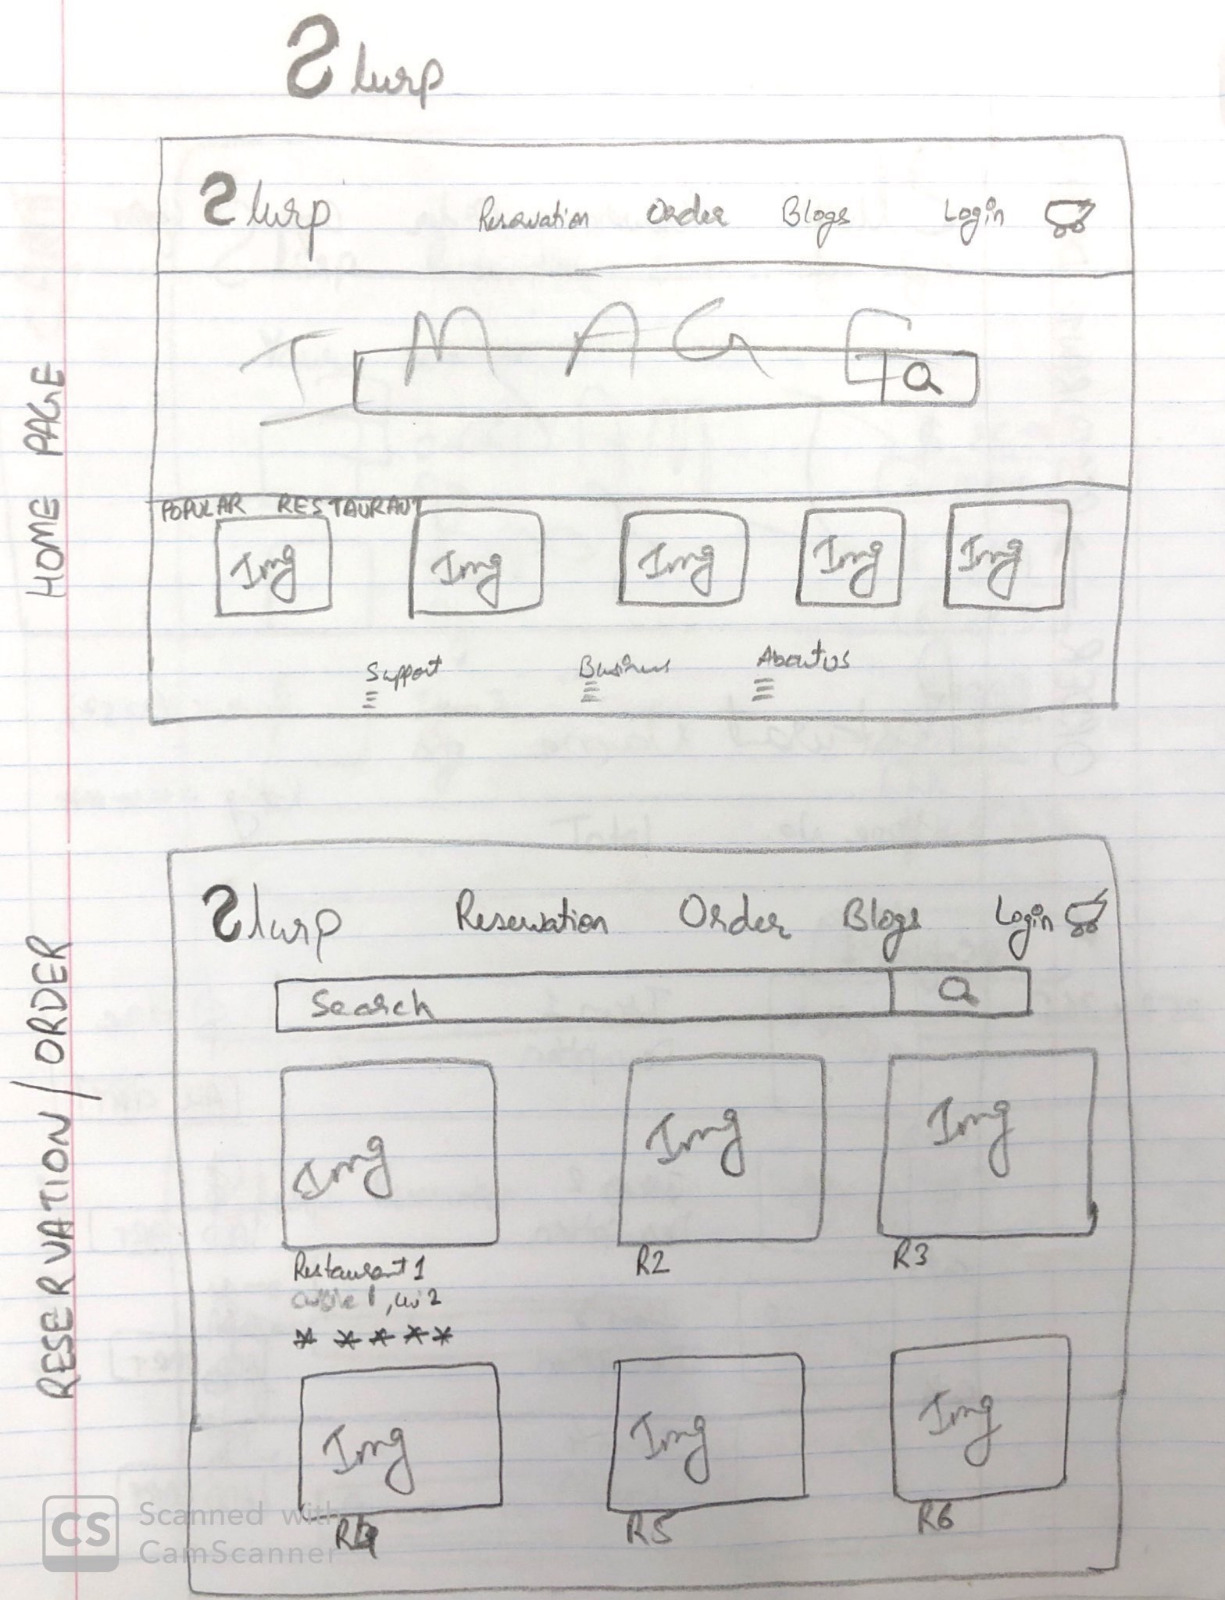 Slurp
HOME PAGE
Slurp Reservation Order Blogs Login
IMAGE
POPULAR RESTAURANT
Img Img Img Img Img
Support Business About us
RESERVATION / ORDER
Slurp Reservation Order Blogs Login
Search
Img Img Img
Restaurant 1 R2 R3
1, cui 2
* * * * *
Img Img Img
R4 R5 R6
CS Scanned with CamScanner